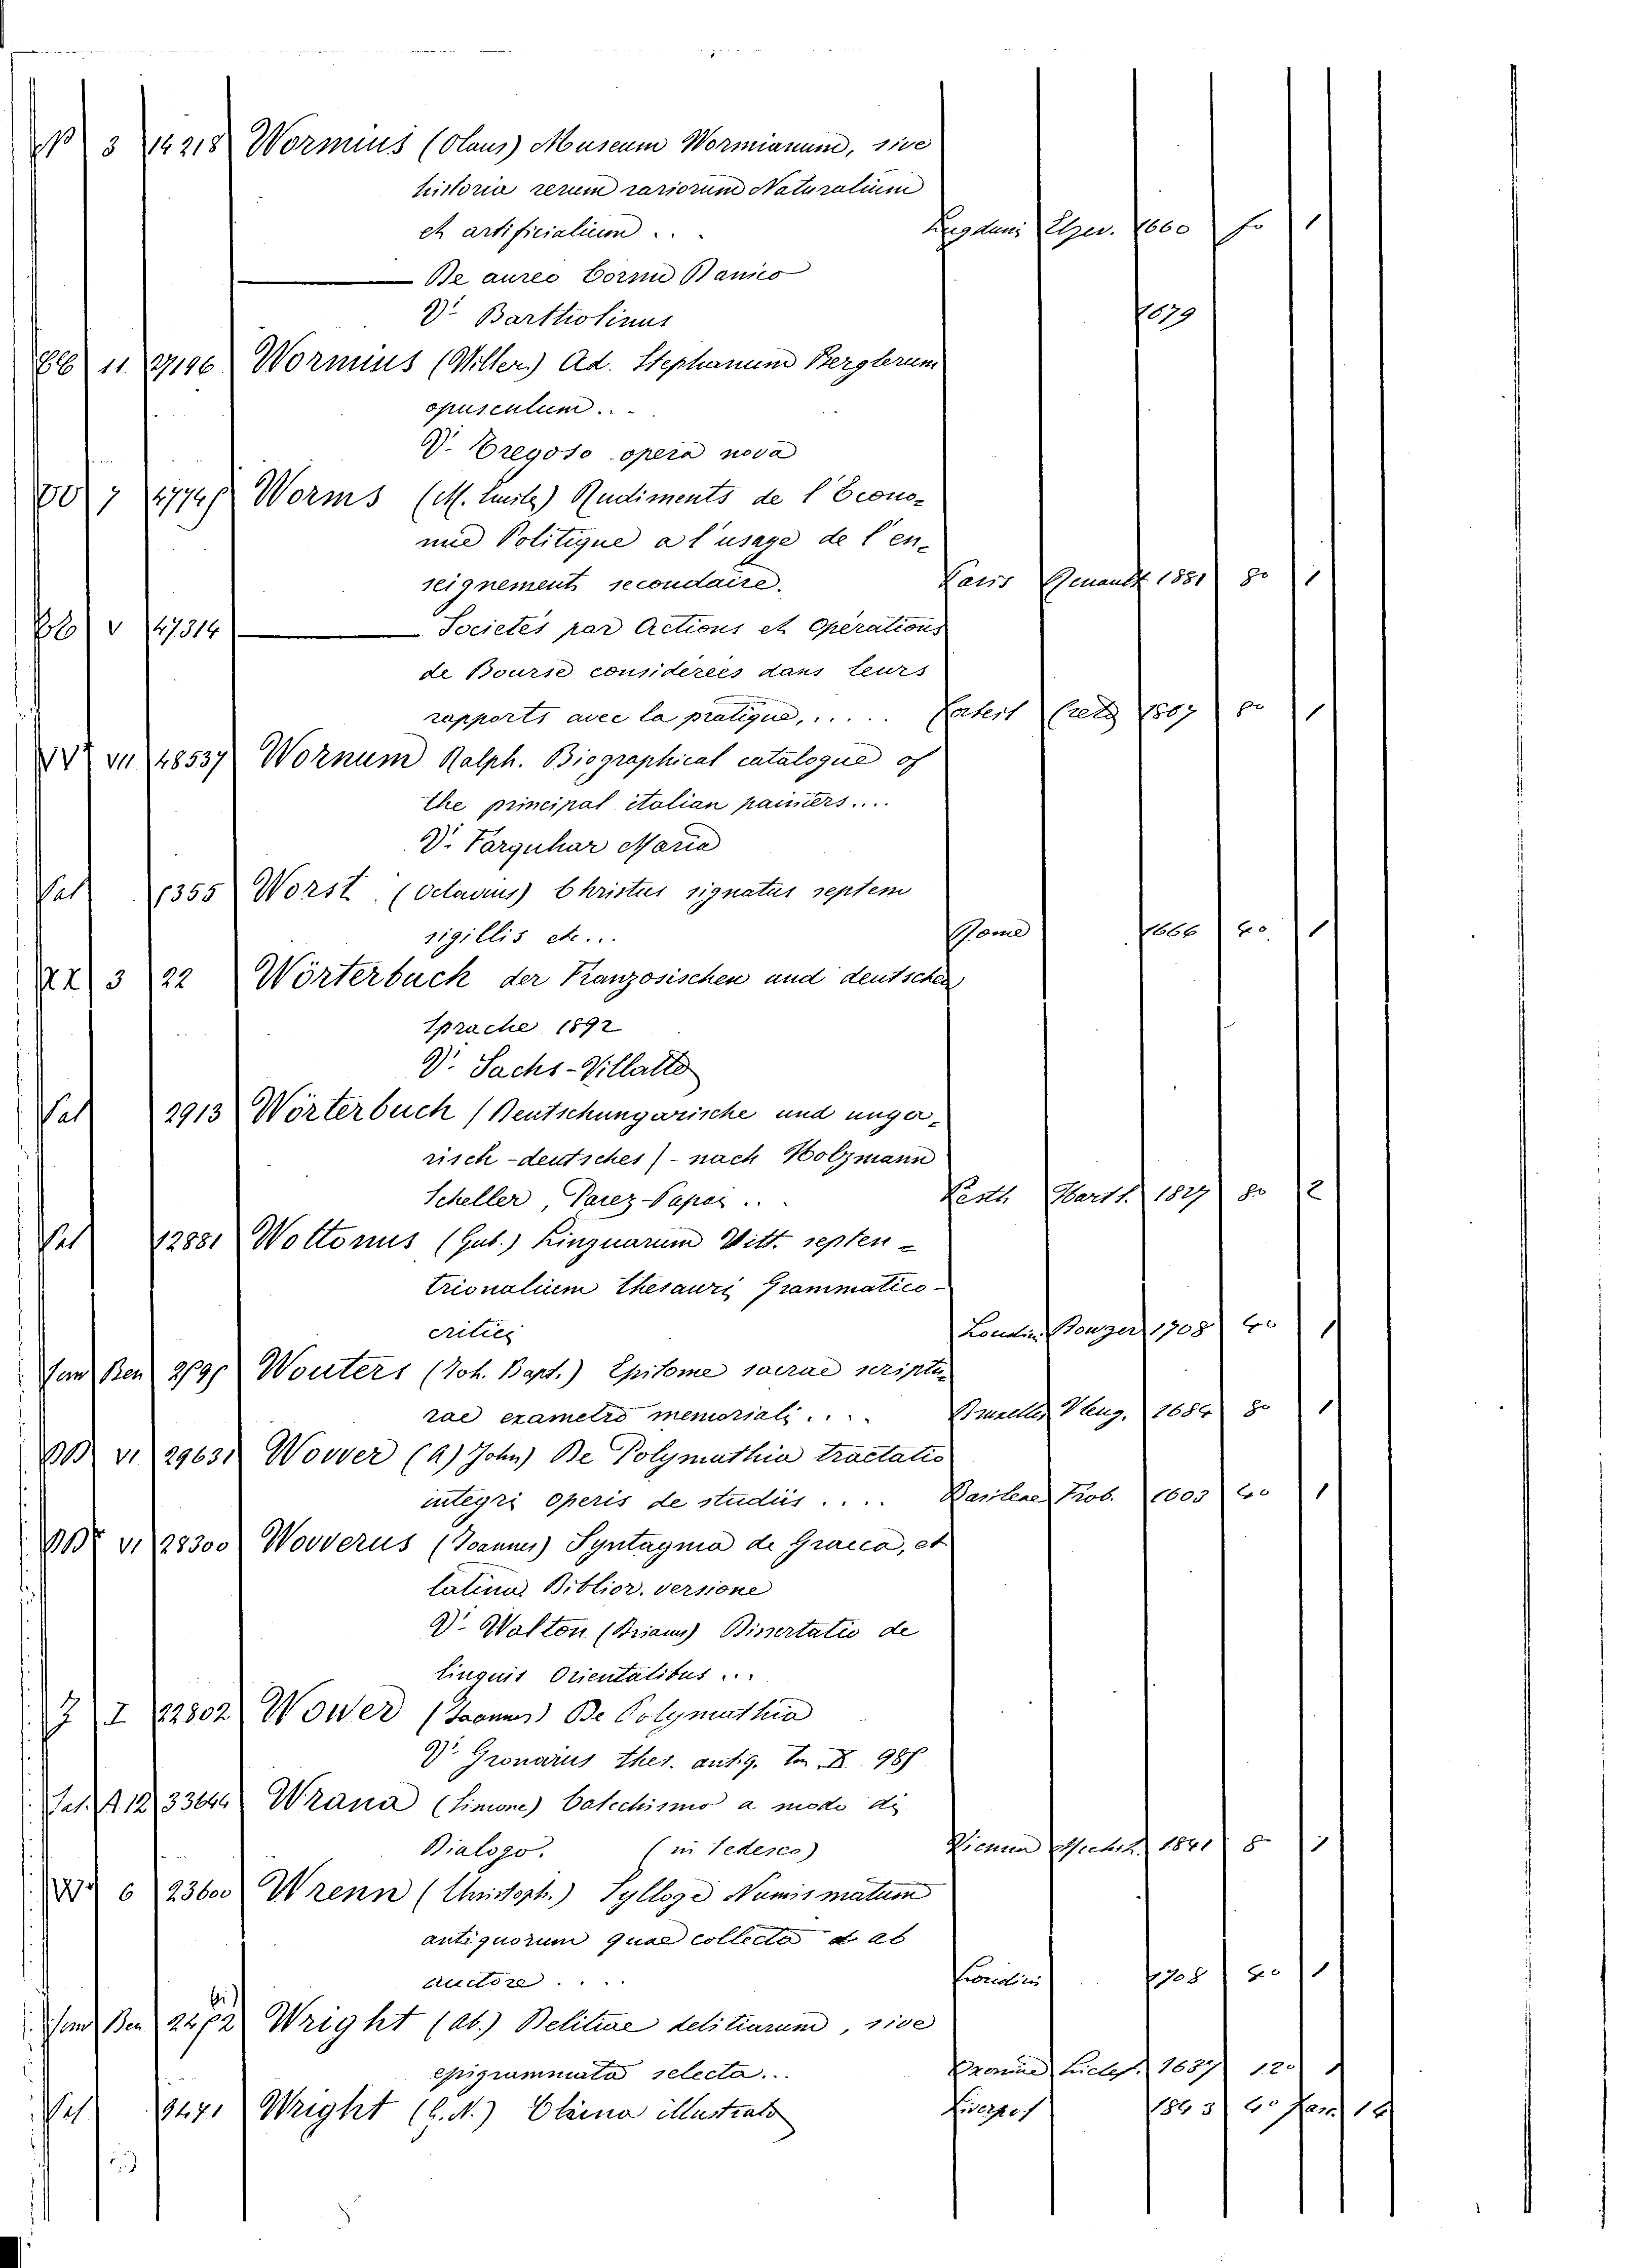 3 14218 Wormius (Olaus) Museum Wormianum, sive
historia rerum rariorum Naturalium
et artificialium ... Lugduni Elzev. 1660 fo 1
De aureo Cornu Danico
V. Bartholinus 1679
11. 27196 Wormius (Willer.) Ad. Stephanum Berglerum
opusculum...
V. Fregoso opera nova
7 Worms (M. Emile) Rudiments de l'Econo-
mie Politique a l'usage de l'en-
seignement secondaire. Paris 1881 8o 1
V 47314 Societés par Actions et Opérations
de Bourse considérées dans leurs
rapports avec la pratique, ..... 1867 8o 1
VII 48537 Wornum Ralph. Biographical catalogue of
the principal italian painters....
V. Farquhar Maria
1355 Worst (Octavius) Christus signatus septem
sigillis etc... Rome 1666 4o. 1
3 22 Wörterbuch der Französischen und deutschen
Sprache 1892
V. Sachs-Villatte
2913 Wörterbuch (Deutschungarische und unga-
risch-deutsches) - nach Holzmann
Scheller, Parez-Papai ... Pesth Hartl. 1827 8o 2
12881 Wottonus (Gul.) Linguarum Vitt. septen-
trionalium thesauri Grammatico-
critici Londin. Bowyer 1708 4o 1
Wouters (Joh. Bapt.) Epitome sacrae scriptu-
rae exametro memoriali .... Bruxelles Vleug. 1684 8o 1
VI 29631 Wovver (A) John) De Polymathia tractatio
integri operis de studiis .... Basileae Frob. 1603 4o 1
VI 28300 Wovverus (Joannes) Syntagma de Graeca, et
latina Biblior. versione
V. Walton (Brians) Dissertatio de
linguis Orientalibus ...
Z I 22802 Wower (Joannes) De Polymathia
V. Gronovius thes. antiq. Tom. X.
A 12 33644 Wrana (Simone) Catechismo a modo di
Dialogo. (in Tedesco) Vienna Mechit. 1841 8 1
6 23600 Wrenn (Christoph.) Sylloge Numismatum
antiquorum quae collecta d ab
auctore .... Londini 1708 4o 1
Wright (Ab.) Delitiae delitiarum, sive
epigrammata selecta... 1637 12o 1
9471 Wright (G.N.) China illustrata Liverpol 1843 4o